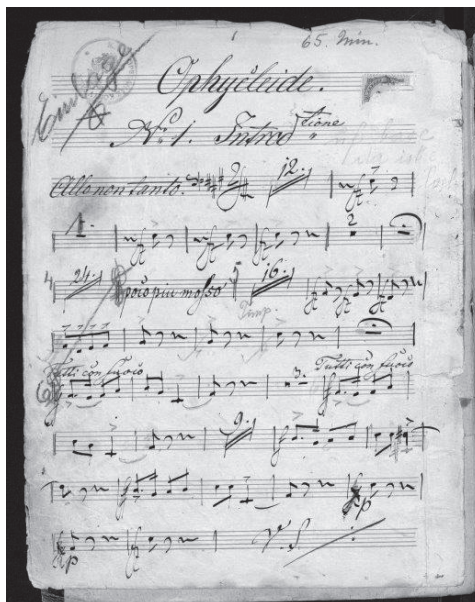 65. Min.
Einlage
Ophycleide.
No. 1. Introdtione
All. non tanto. 12.
1. 2
24. poco piu mosso 16.
Timp.
Tutti con fuoco Tutti con fuoco
3.
9.
p
p V. S.